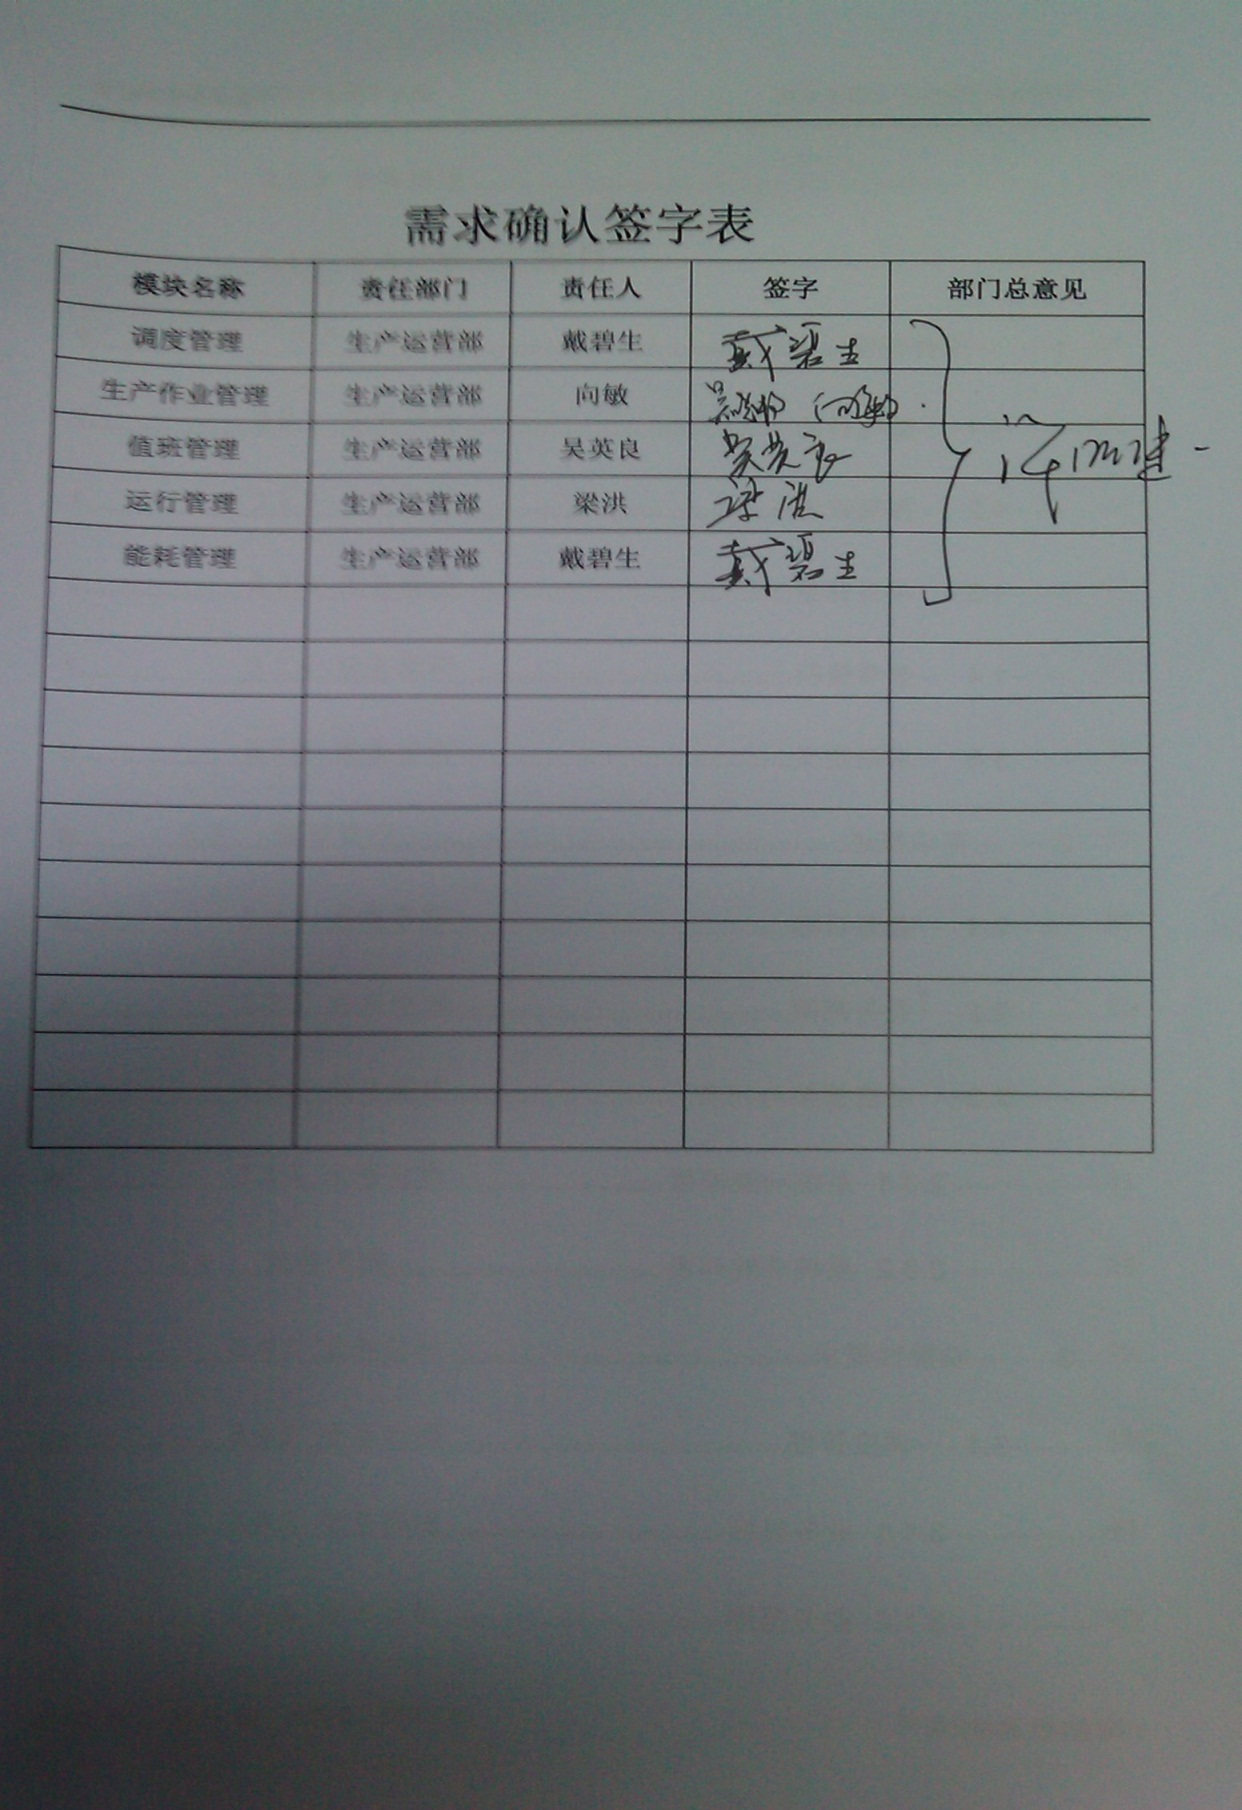 需求确认签字表
模块名称 责任部门 责任人 签字 部门总意见
调度管理 生产运营部 戴碧生 戴碧生
生产作业管理 生产运营部 向敏
值班管理 生产运营部 吴英良 吴英良
运行管理 生产运营部 梁洪 梁洪
能耗管理 生产运营部 戴碧生 戴碧生